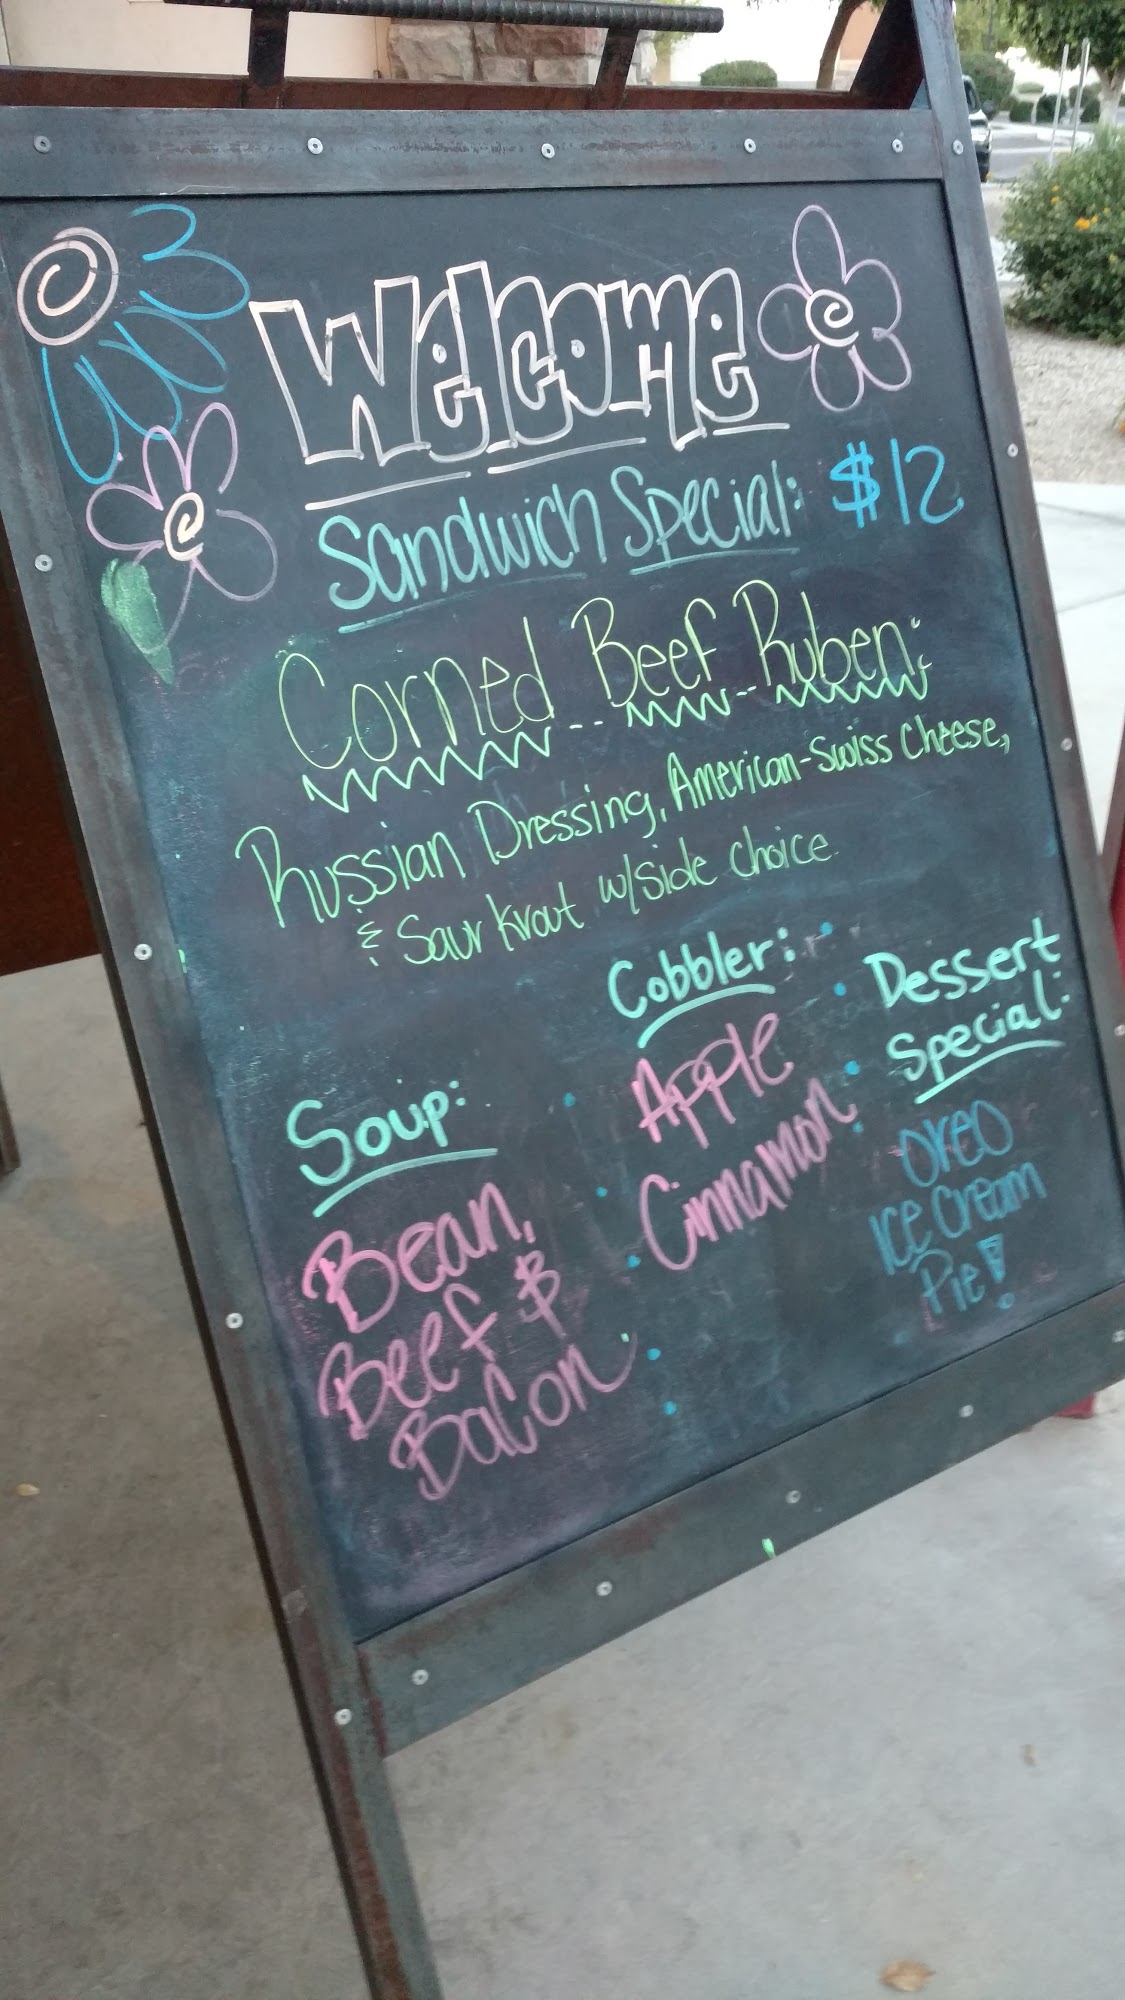 Welcome
Sandwich Special: $12
Corned Beef Ruben:
Russian Dressing, American-Swiss Cheese,
& Saur Krout w/side choice
Soup:
Bean,
Beef &
Bacon
Cobbler:
Apple
Cinnamon
Dessert
Special:
Oreo
Ice Cream
Pie!